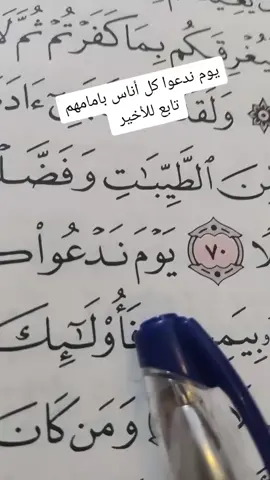 يُغْرِقَكُم بِمَا كَفَرْتُمْ ثُمَّ لَا
يوم ندعوا كل أناس بامامهم
تابع للأخير
وَلَقَ
ءَادَ
ٱلطَّيِّبَٰتِ وَفَضَّلْ
٧٠ يَوْمَ نَدْعُوا۟ كُ
بِيَمِ فَأُو۟لَٰٓئِكَ
وَمَن كَانَ